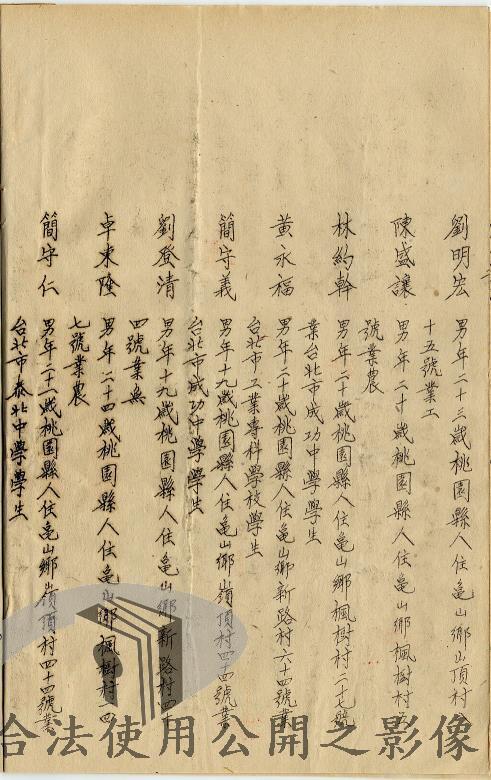 劉明宏　男年二十三歲桃園縣人住龜山鄉山頂村
十五號業工
陳盛讓　男年二十歲桃園縣人住龜山鄉楓樹村五
號業農
林約幹　男年二十歲桃園縣人住龜山鄉楓樹村二十七號
業台北市成功中學學生
黃永福　男年二十歲桃園縣人住龜山鄉新路村六十四號業
台北市工業專科學校學生
簡守義　男年十九歲桃園縣人住龜山鄉嶺頂村四十四號業
台北市成功中學學生
劉登清　男年十九歲桃園縣人住龜山鄉新路村四十
四號業無
卓東隆　男年二十四歲桃園縣人住龜山鄉楓樹村一四
七號業農
簡守仁　男年二十一歲桃園縣人住龜山鄉嶺頂村四十四號業
台北市泰北中學學生
合法使用公開之影像